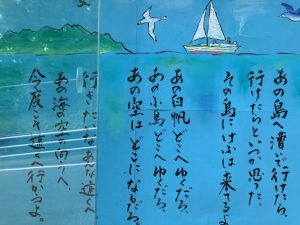 あの島へ漕いで行けたら、
行けたらといつか思った、
その島にけふは来てゐるよ
あの白帆どこへゆくだろ、
あの小鳥どこへゆくだろ、
あの空はどこになるだろ。
行きたいなあな遠くへ
あの海の空の向うへ、
今度こそ遠くへ行かうよ。